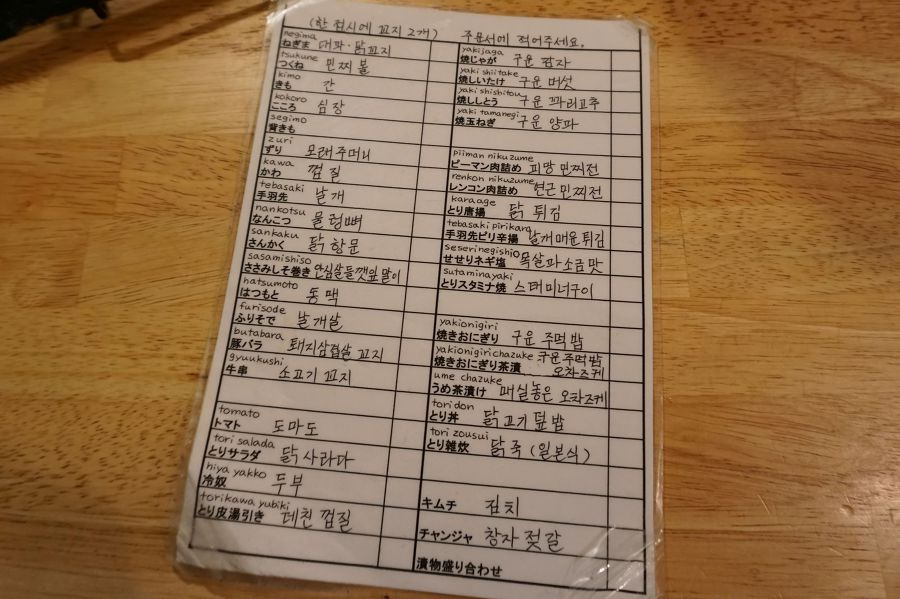 (한 접시에 꼬지 2개)
negima
ねぎま 대파·닭꼬지
tsukune
つくね 민찌 볼
kimo
きも 간
kokoro
こころ 심장
segimo
背きも
zuri
ずり 모래주머니
kawa
かわ 껍질
tebasaki
手羽先 날개
nankotsu
なんこつ 물렁뼈
sankaku
さんかく 닭 항문
sasamishiso
ささみしそ巻き 안심살들깻잎말이
hatsumoto
はつもと 동맥
furisode
ふりそで 날개살
butabara
豚バラ 돼지삼겹살 꼬지
gyuukushi
牛串 소고기 꼬지
tomato
トマト 도마도
tori salada
とりサラダ 닭 사라다
hiya yakko
冷奴 두부
torikawa yubiki
とり皮湯引き 데친 껍질
주문서에 적어주세요.
yakijaga
焼じゃが 구운 감자
yaki shiitake
焼しいたけ 구운 버섯
yaki shishitou
焼ししとう 구운 꽈리고추
yaki tamanegi
焼玉ねぎ 구운 양파
piiman nikuzume
ピーマン肉詰め 피망 민찌전
renkon nikuzume
レンコン肉詰め 연근 민찌전
karaage
とり唐揚 닭 튀김
tebasaki pirikara
手羽先ピリ辛揚 날개매운튀김
seserinegishio
せせりネギ塩 목살파소금맛
sutaminayaki
とりスタミナ焼 스태미너구이
yakionigiri
焼きおにぎり 구운 주먹밥
yakionigiri chazuke 구운주먹밥
焼きおにぎり茶漬 오차즈케
ume chazuke
うめ茶漬け 매실넣은 오차즈케
toridon
とり丼 닭고기 덮밥
tori zousui
とり雑炊 닭죽 (일본식)
キムチ 김치
チャンジャ 창자젓갈
漬物盛り合わせ